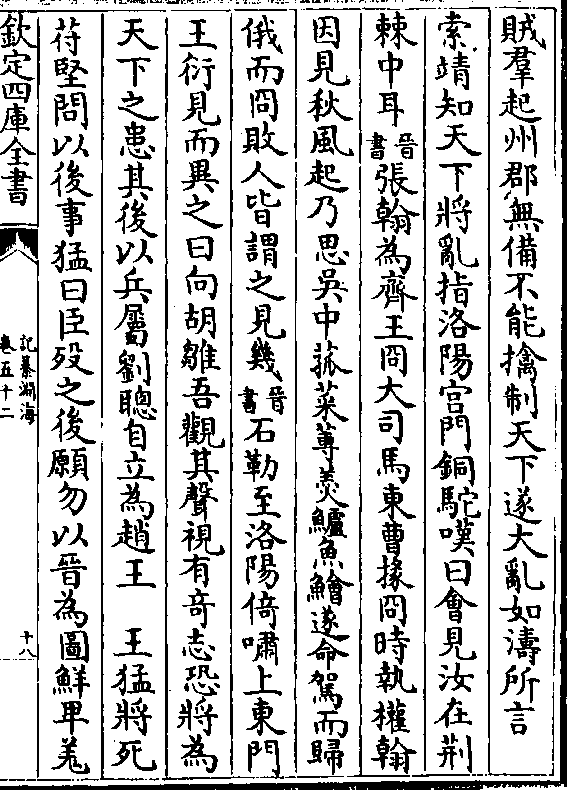 賊羣起州郡無備不能擒制天下遂大亂如濤所言
索靖知天下將亂指洛陽宫門銅駞嘆曰會見汝在荆
棘中耳晉書張翰為齊王冏大司馬東曹掾冏時執權翰
因見秋風起乃思吳中菰菜蓴羮鱸魚鱠遂命駕而歸
俄而冏敗人皆謂之見幾晉書石勒至洛陽倚嘯上東門
王衍見而異之曰向胡雛吾觀其聲視有竒志恐將為
天下之患其後以兵屬劉聰自立為趙王　王猛將死
苻堅問以後事猛曰臣殁之後願勿以晉為圖鮮卑羌
欽定四庫全書
記纂淵海
卷五十二
十八